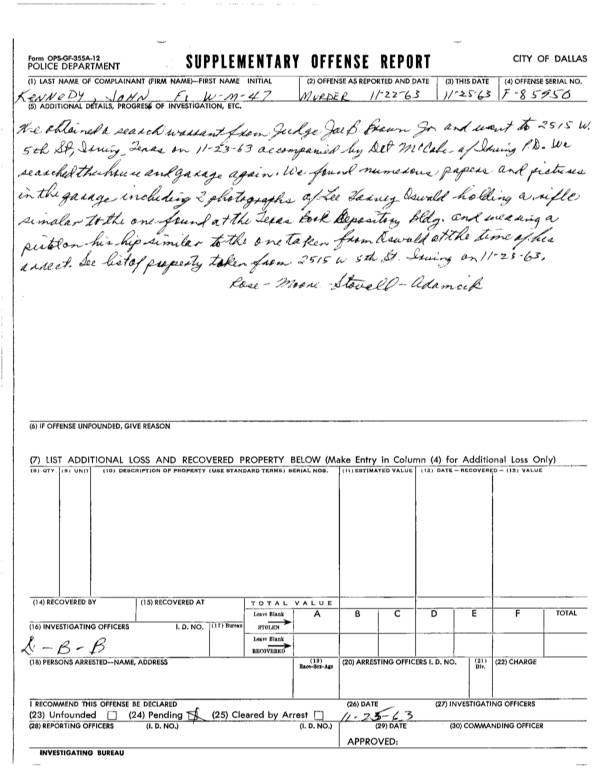 Form OPS-GF-355A-12
POLICE DEPARTMENT
SUPPLEMENTARY OFFENSE REPORT
CITY OF DALLAS
(1) LAST NAME OF COMPLAINANT (FIRM NAME)—FIRST NAME INITIAL
(2) OFFENSE AS REPORTED AND DATE
(3) THIS DATE
(4) OFFENSE SERIAL NO.
KENNEDY, JOHN F. W-M-47
MURDER 11-22-63
11-25-63
F-85950
(5) ADDITIONAL DETAILS, PROGRESS OF INVESTIGATION, ETC.
We obtained a search warrant from Judge Joe B Brown Jr. and went to 2515 W.
5th St, Irving Texas on 11-23-63 accompanied by Det McCabe of Irving P.D. We
searched the house and garage again. We found numerous papers and pictures
in the garage including 2 photographs of Lee Harvey Oswald holding a rifle
simalar to the one found at the Texas Book Depository bldg. and wearing a
pistol on his hip similar to the one taken from Oswald at the time of his
arrect. See list of property taken from 2515 W 5th St. Irving on 11-23-63.
Rose - Moore - Stovall - Adamcik
(6) IF OFFENSE UNFOUNDED, GIVE REASON
(7) LIST ADDITIONAL LOSS AND RECOVERED PROPERTY BELOW (Make Entry in Column (4) for Additional Loss Only)
(8) QTY
(9) UNIT
(10) DESCRIPTION OF PROPERTY (USE STANDARD TERMS) SERIAL NOS.
(11) ESTIMATED VALUE
(12) DATE – RECOVERED – (13) VALUE
(14) RECOVERED BY
(15) RECOVERED AT
TOTAL VALUE
Leave Blank
STOLEN
A B C D E F TOTAL
(16) INVESTIGATING OFFICERS I. D. NO.
(17) Bureau
Leave Blank
RECOVERED
B - B
(18) PERSONS ARRESTED—NAME, ADDRESS
(19) Race-Sex-Age
(20) ARRESTING OFFICERS I. D. NO.
(21) Div.
(22) CHARGE
I RECOMMEND THIS OFFENSE BE DECLARED
(23) Unfounded
(24) Pending
(25) Cleared by Arrest
(26) DATE
(27) INVESTIGATING OFFICERS
11-25-63
(28) REPORTING OFFICERS
(I. D. NO.)
(I. D. NO.)
(29) DATE
(30) COMMANDING OFFICER
APPROVED:
INVESTIGATING BUREAU